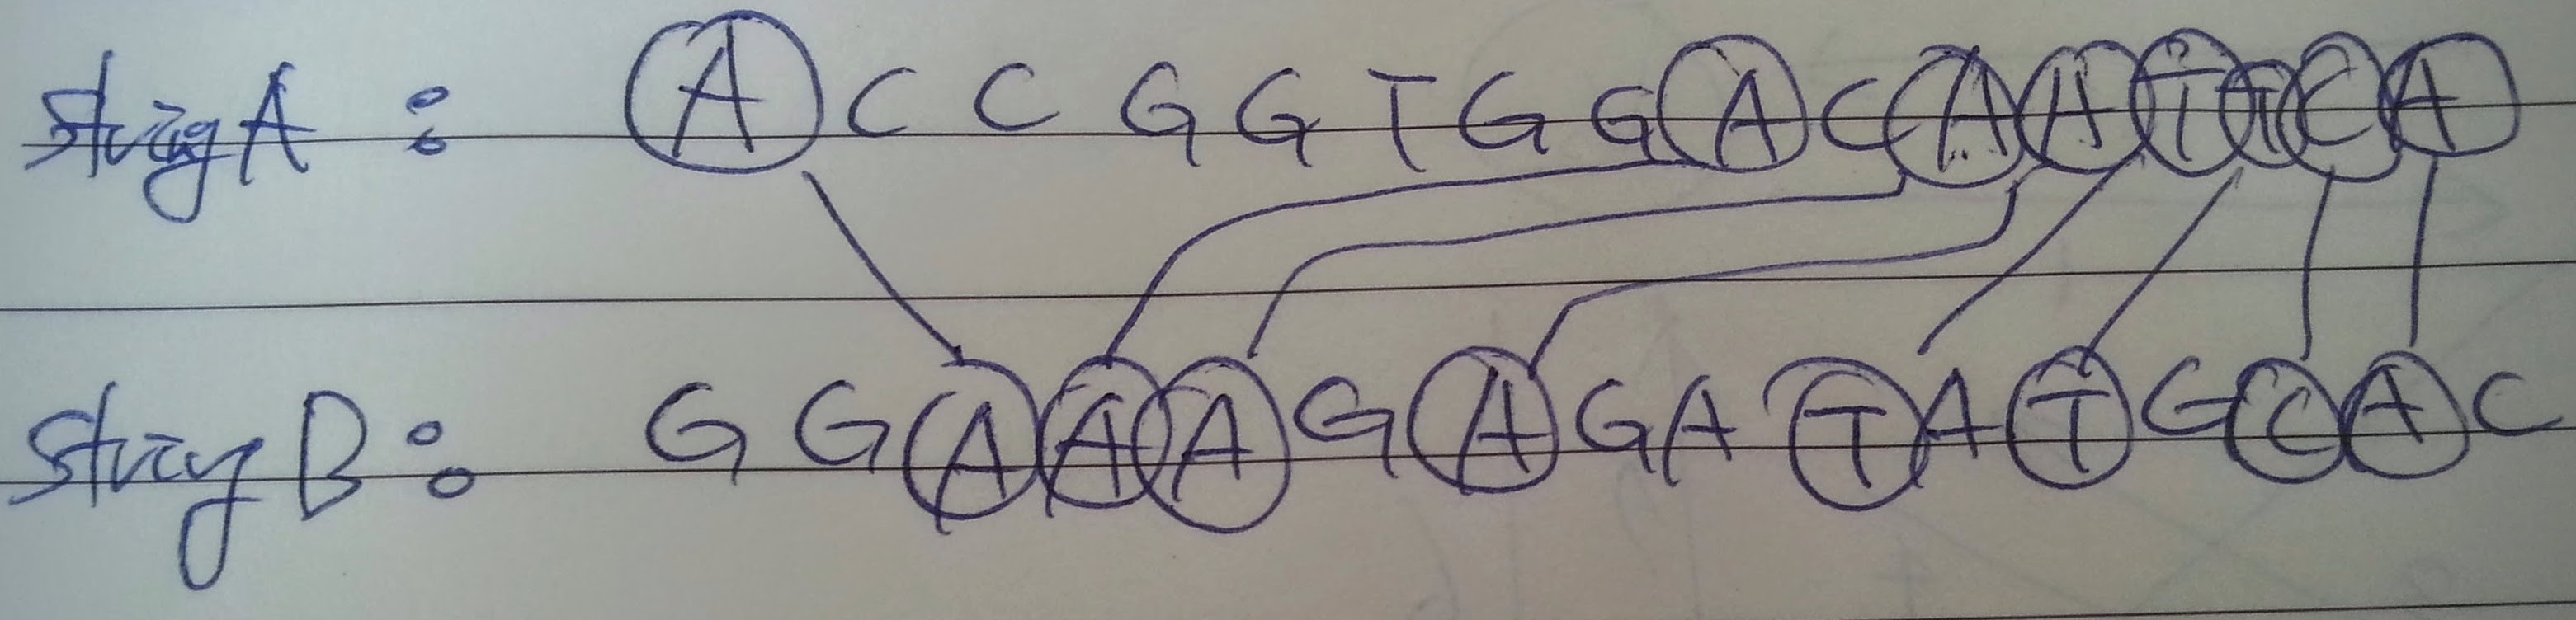 String A : A C C G G T G G A C A A T T C A
String B : G G A A A G A G A T A T G C A C